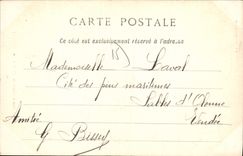 CARTE POSTALE
Ce côté est exclusivement réservé à l'adresse
Mademoiselle Laval
Cité des pins maritimes
Sables d'Olonne
Vendée